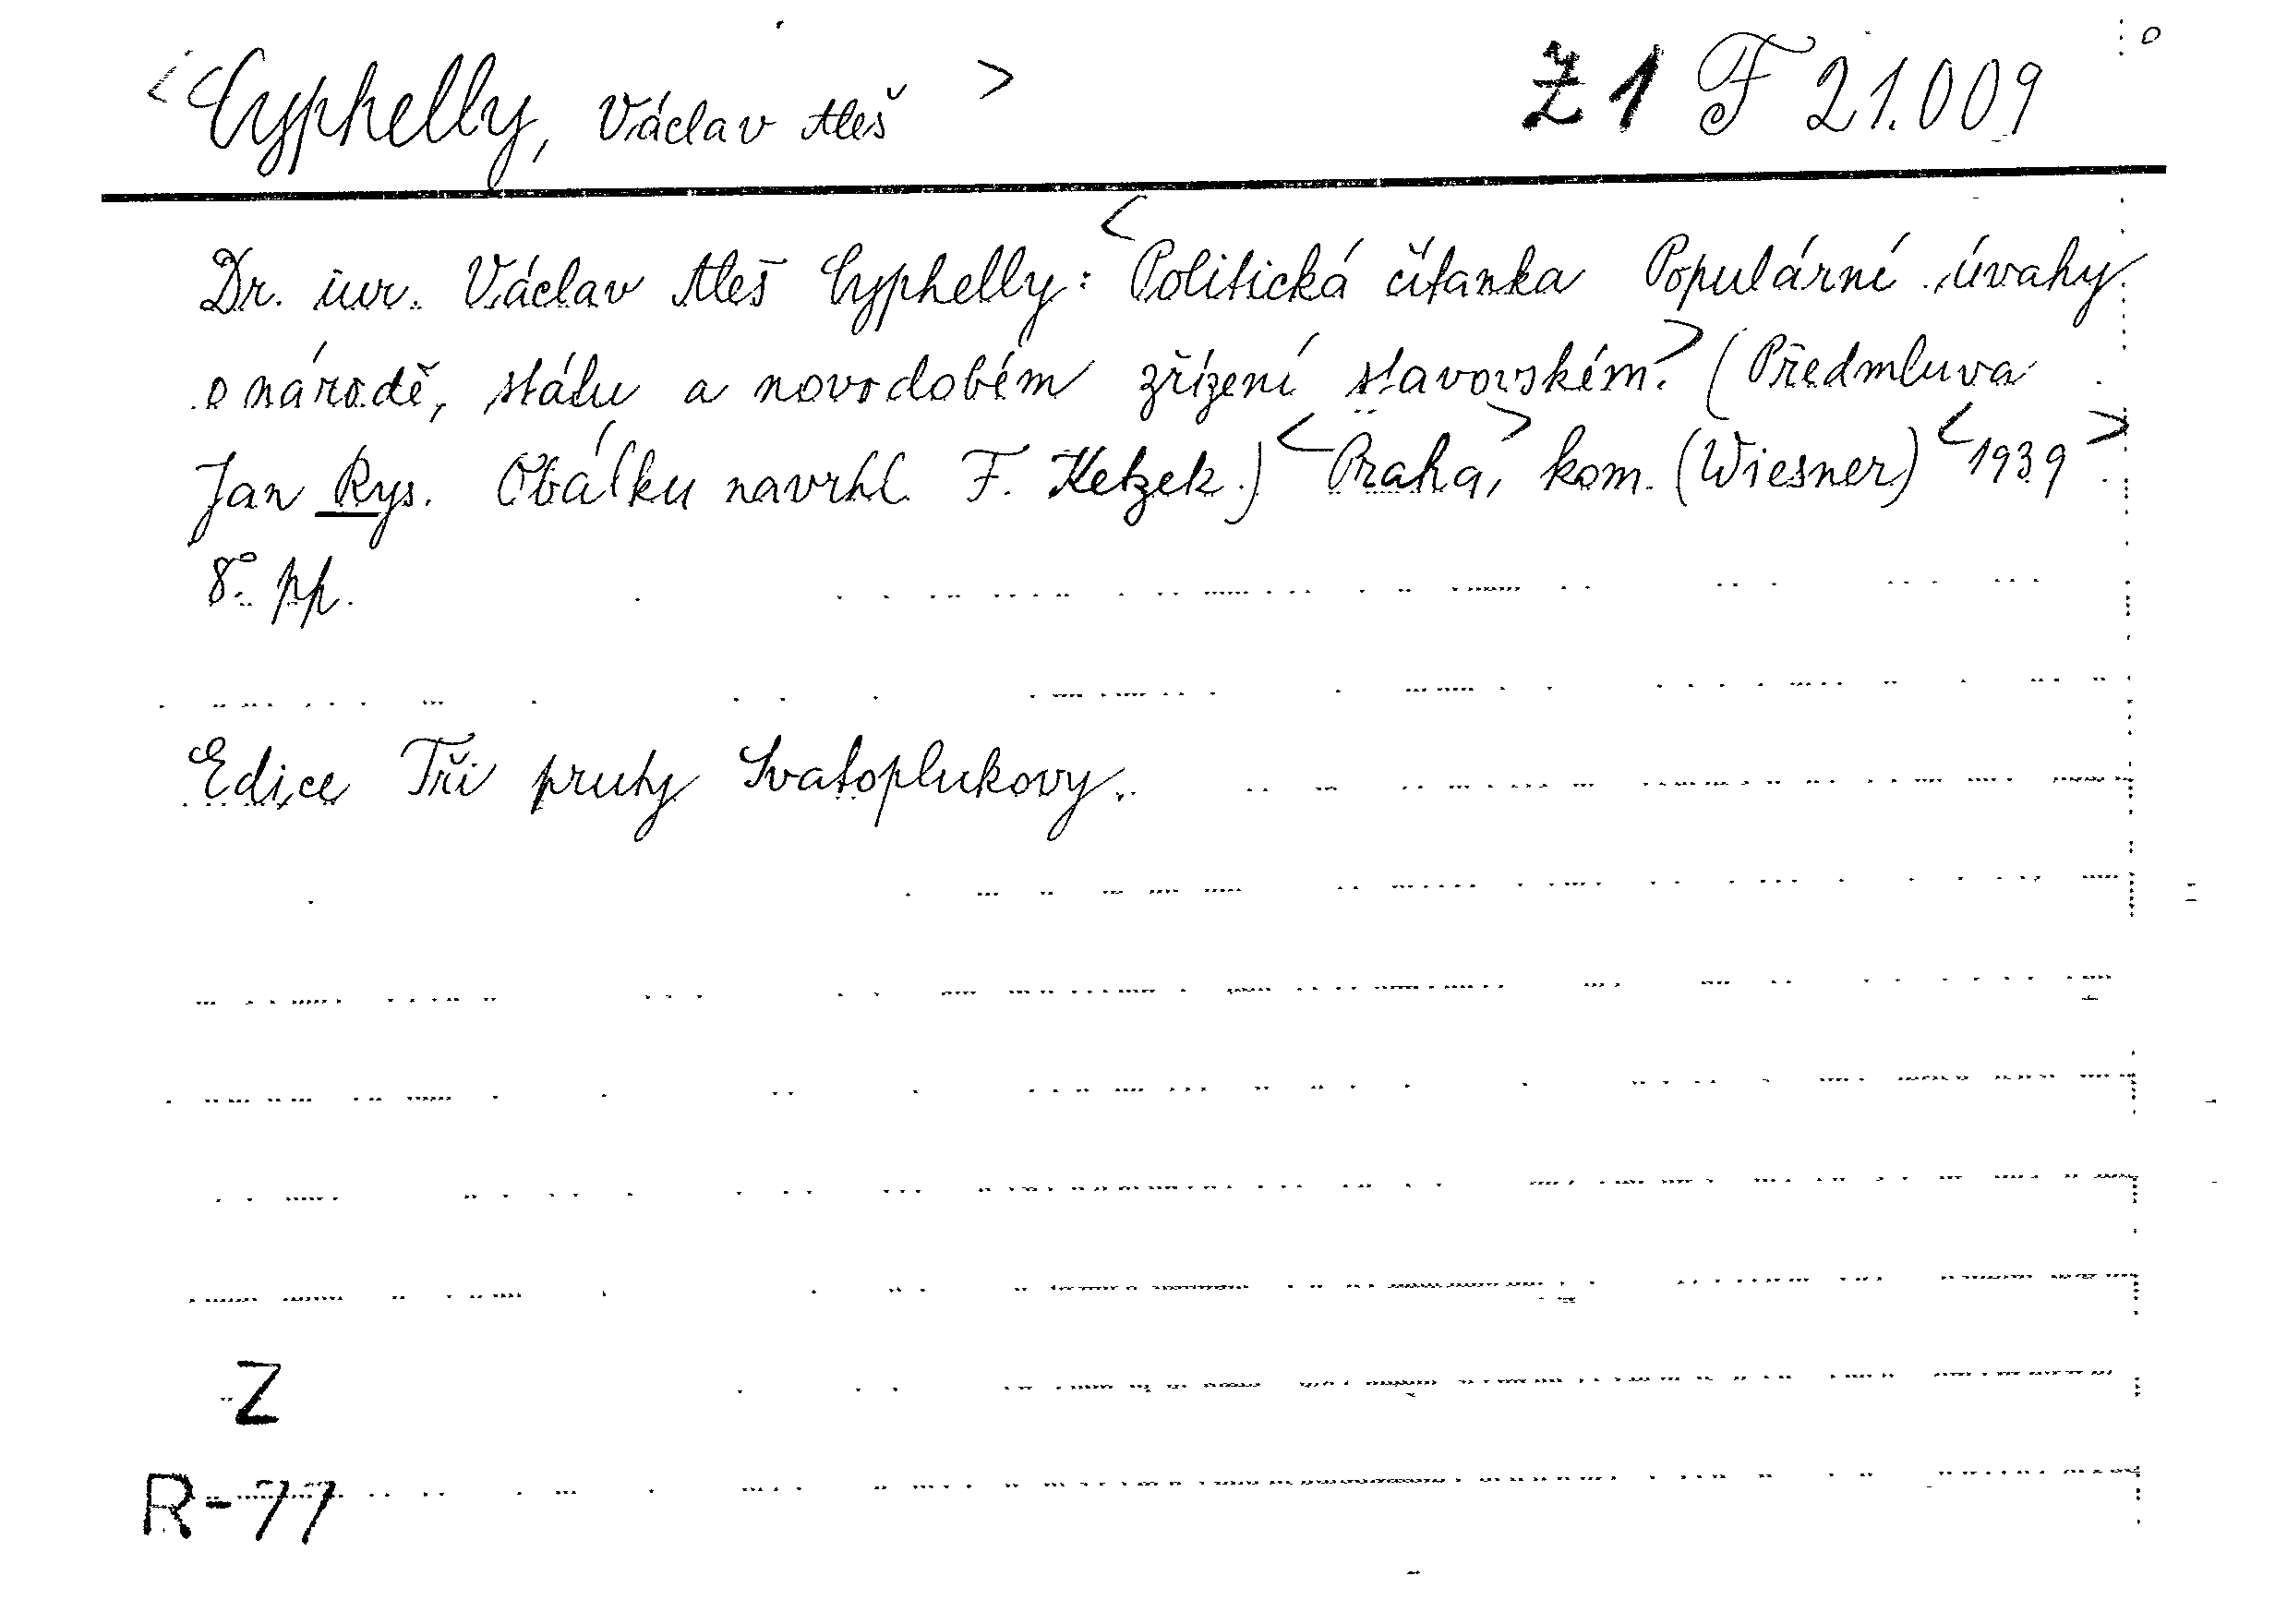 < Cyphelly, Václav Aleš > Z 1 F 21.009
Dr. iur. Václav Aleš Cyphelly: < Politická čítanka Populární úvahy
o národě, státu a novodobém zřízení stavovském. > (Předmluva
Jan Rys. Obálku navrhl F. Ketzek.) < Praha, > kom. (Wiesner) < 1939 >
8°. pp.
Edice Tři pruty Svatoplukovy.
Z
R-77